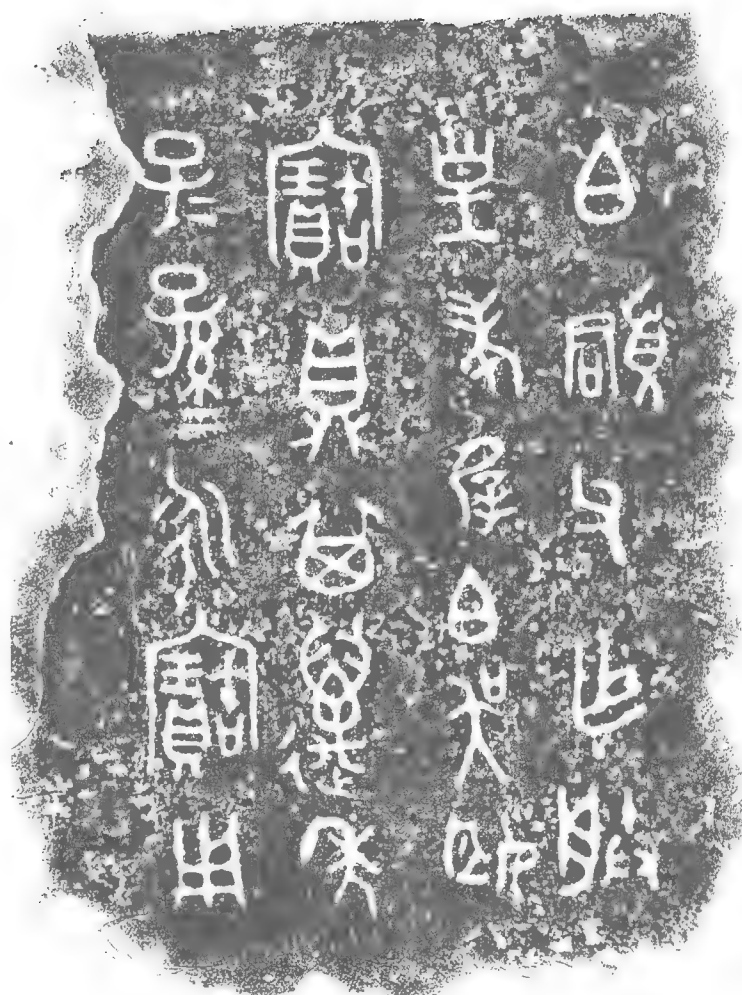 白頵父乍朕
皇考屖白吳姬
寶鼎其萬年
子＝孫＝永寶用